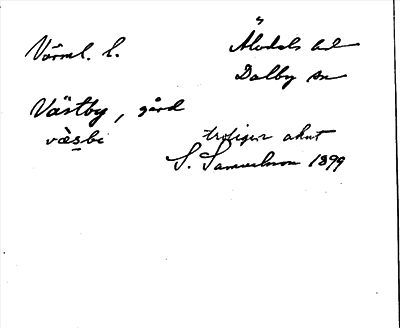 Värml. l. Älvdals hd
Dalby sn
Västby, gård
væ̀sbi troligen akut
S. Samuelsson 1899